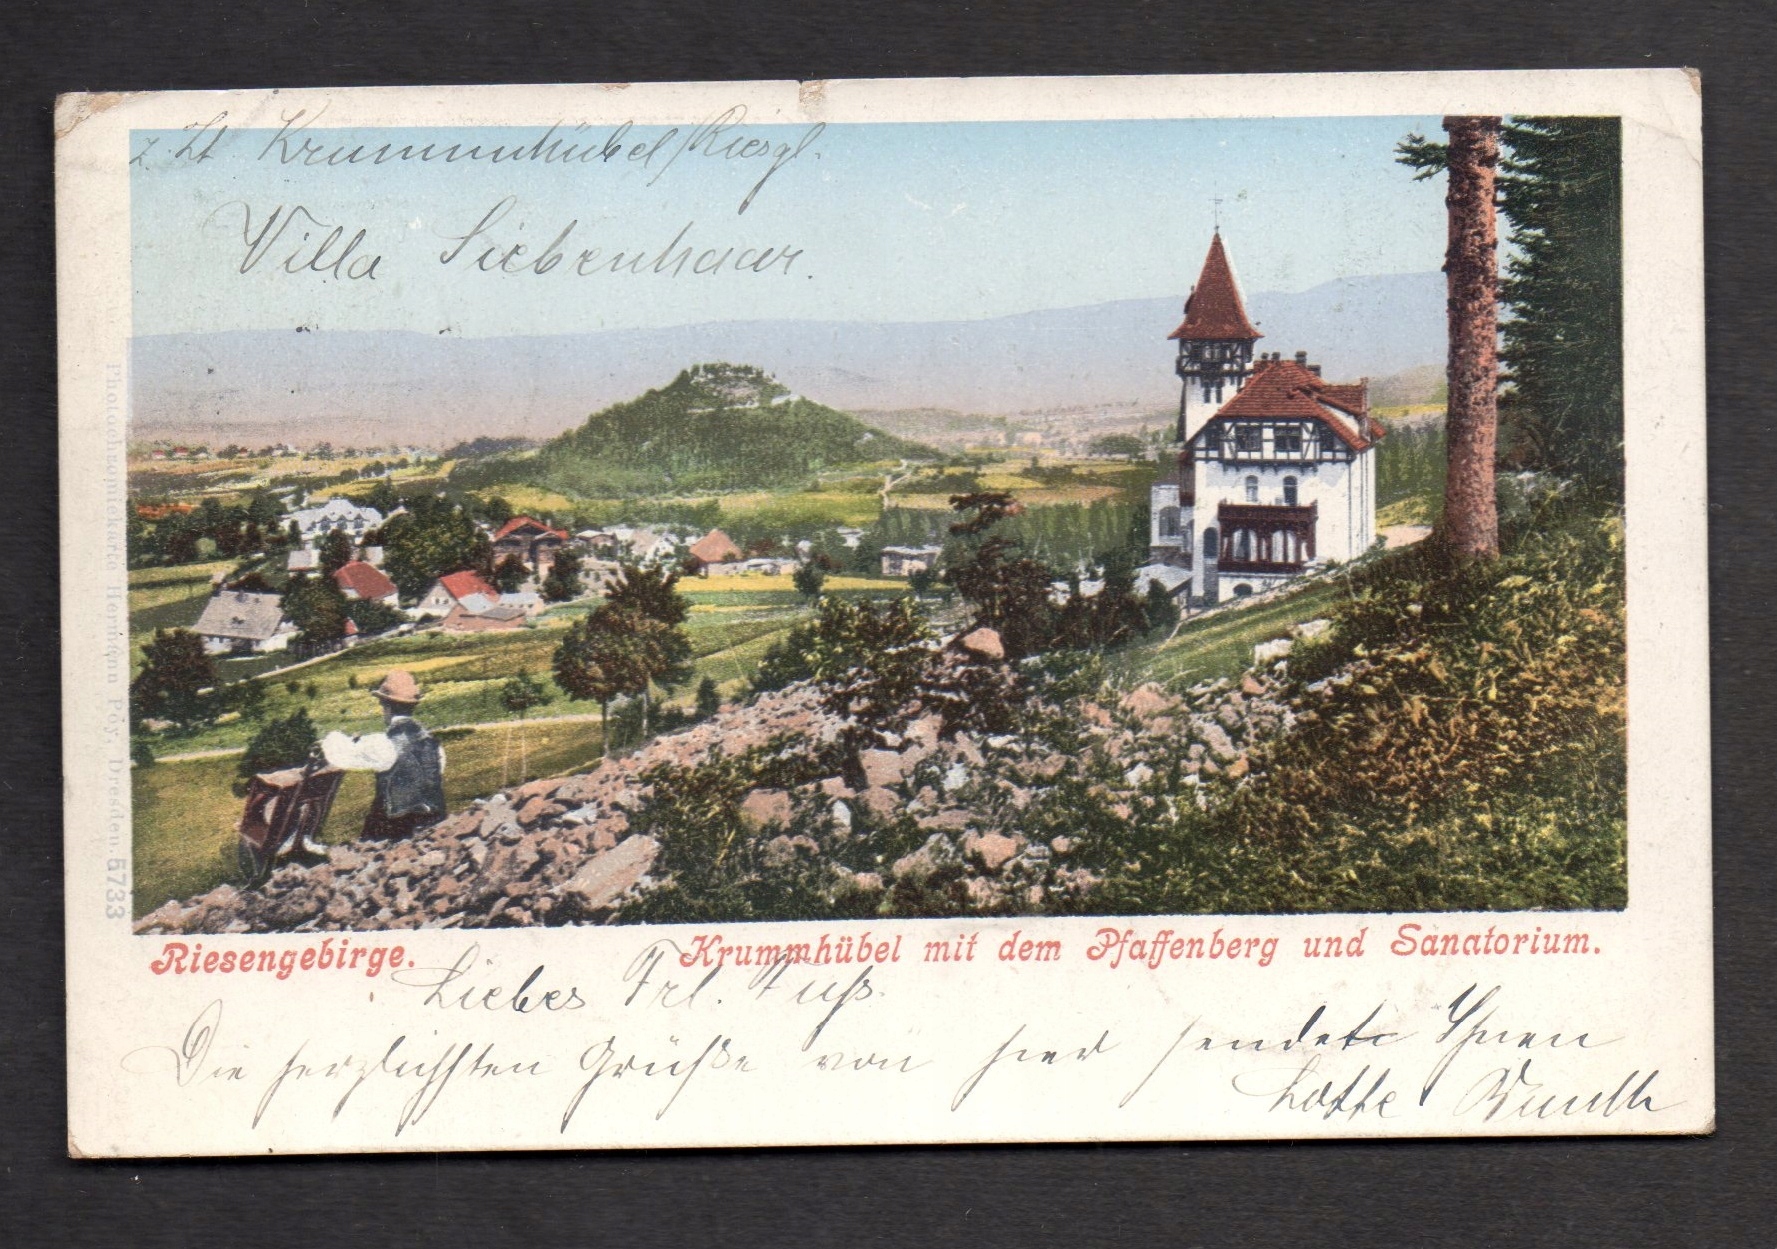 z. Zt Krummhübel/Riesgb.
Villa Siebenhaar.
Photochromiekarte Hermann Poy, Dresden. 5733
Riesengebirge. Krummhübel mit dem Pfaffenberg und Sanatorium.
Liebes Frl. Fuß.
Die herzlichsten Grüße von hier sendet Ihnen
Lotte